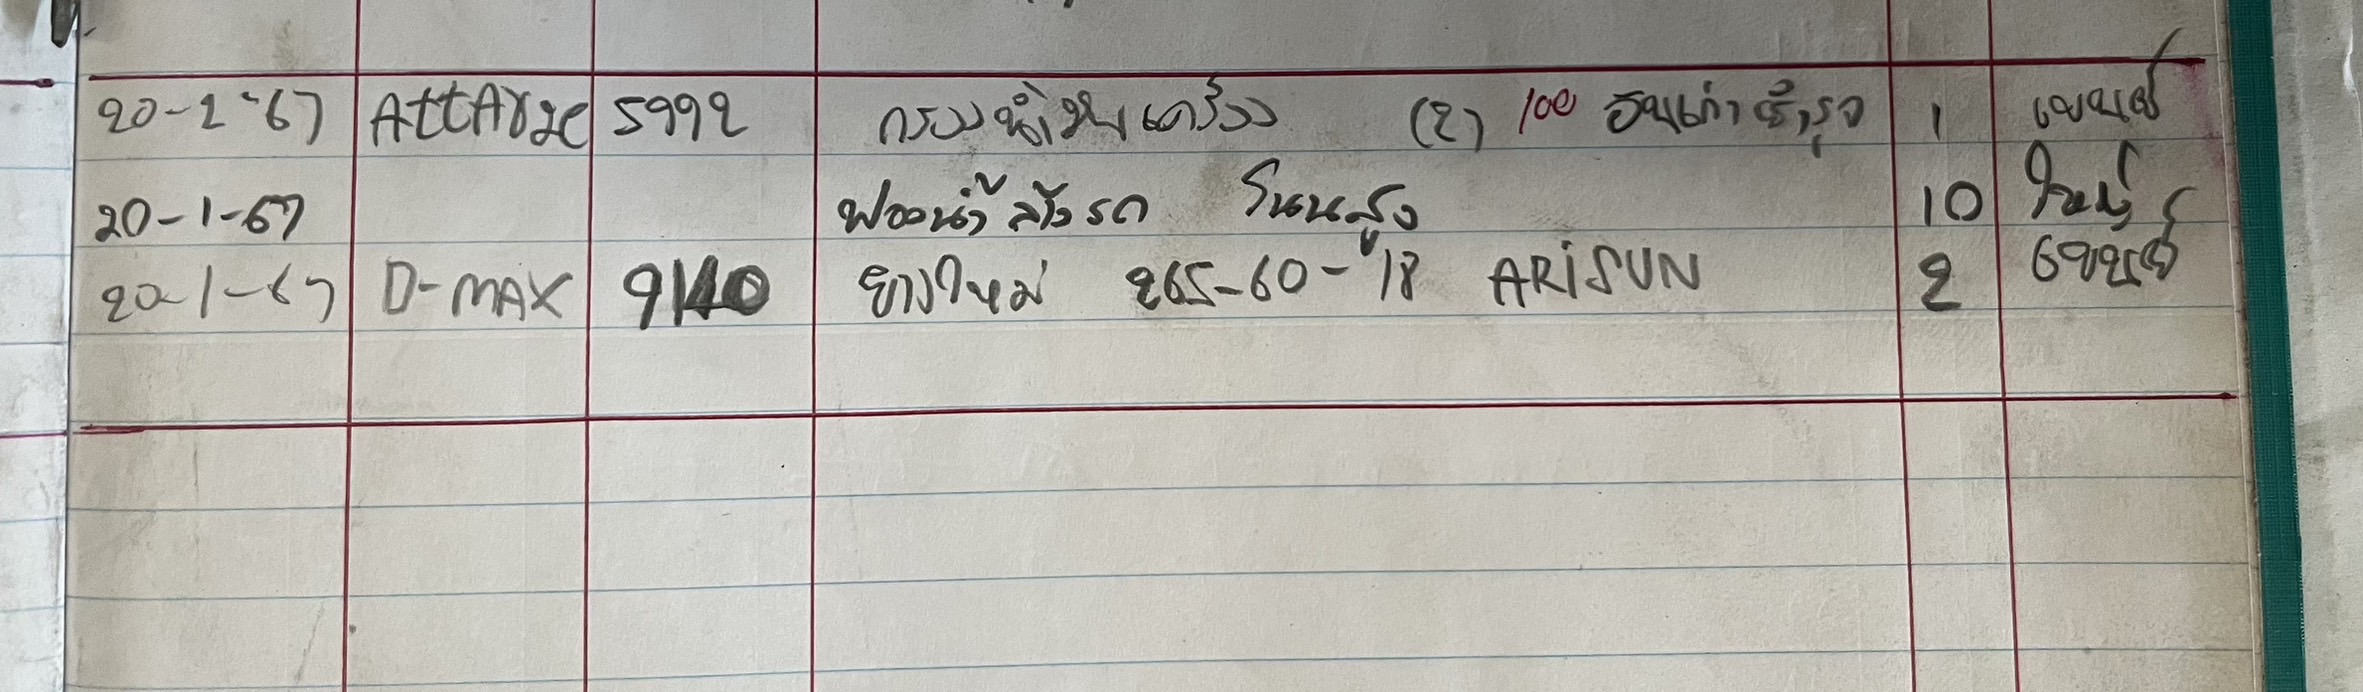 20-1-67 AttArge 5992 กรองน้ำมันเครื่อง (2) 100 อันเก่าชำรุด 1
20-1-67 ฟองน้ำล้างรถ โนนสูง 10
20-1-67 D-MAX 9140 ยางใหม่ 265-60-18 ARiSUN 2